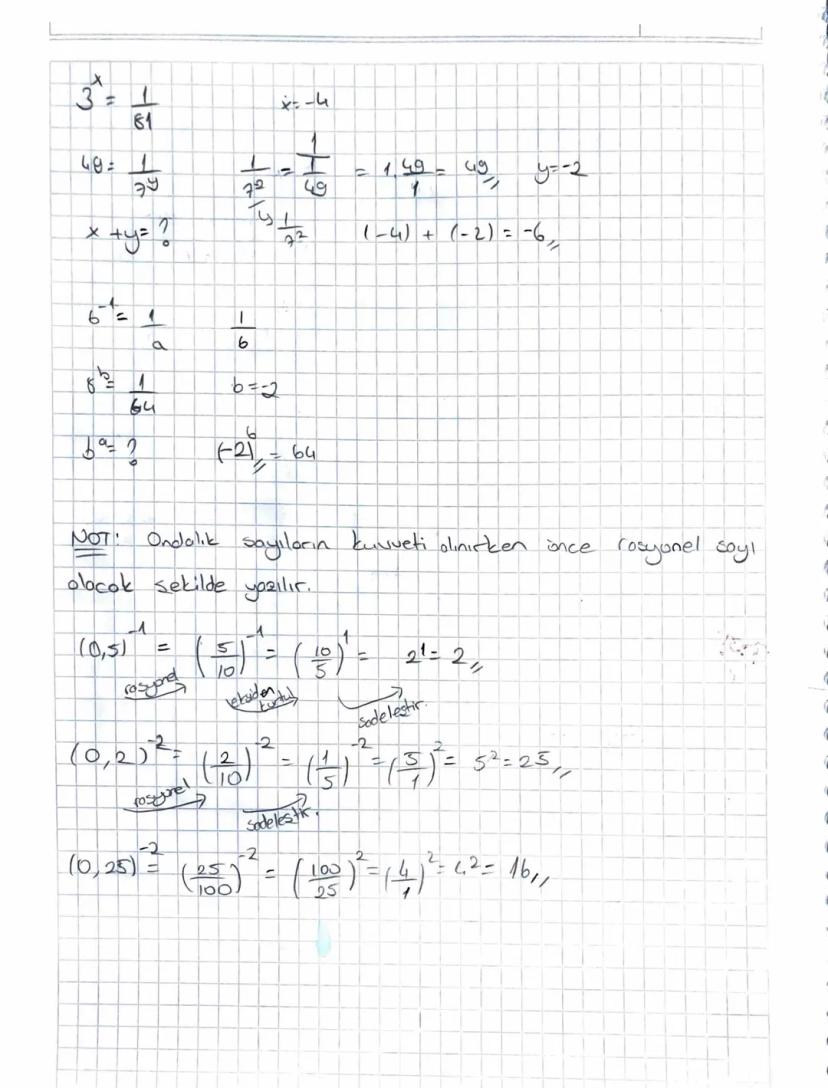 3^x = 1/81 x = -4
49 = 1/7^y 1/7^-2 = 1/(1/49) = 1.49/1 = 49,, y = -2
x + y = ? ↳ 1/7^2 (-4) + (-2) = -6,,
6^-1 = 1/a 1/6
8^b = 1/64 b = -2
b^a = ? (-2)^6,, = 64
NOT: Ondalık sayıların kuvveti alınırken önce rasyonel sayı
olacak şekilde yazılır.
(0,5)^-1 = (5/10)^-1 = (10/5)^1 = 2^1 = 2,,
rasyonel eksiden kurtul sadeleştir.
(0,2)^-2 = (2/10)^-2 = (1/5)^-2 = (5/1)^2 = 5^2 = 25,,
rasyonel sadeleştir.
(0,25)^-2 = (25/100)^-2 = (100/25)^2 = (4/1)^2 = 4^2 = 16,,